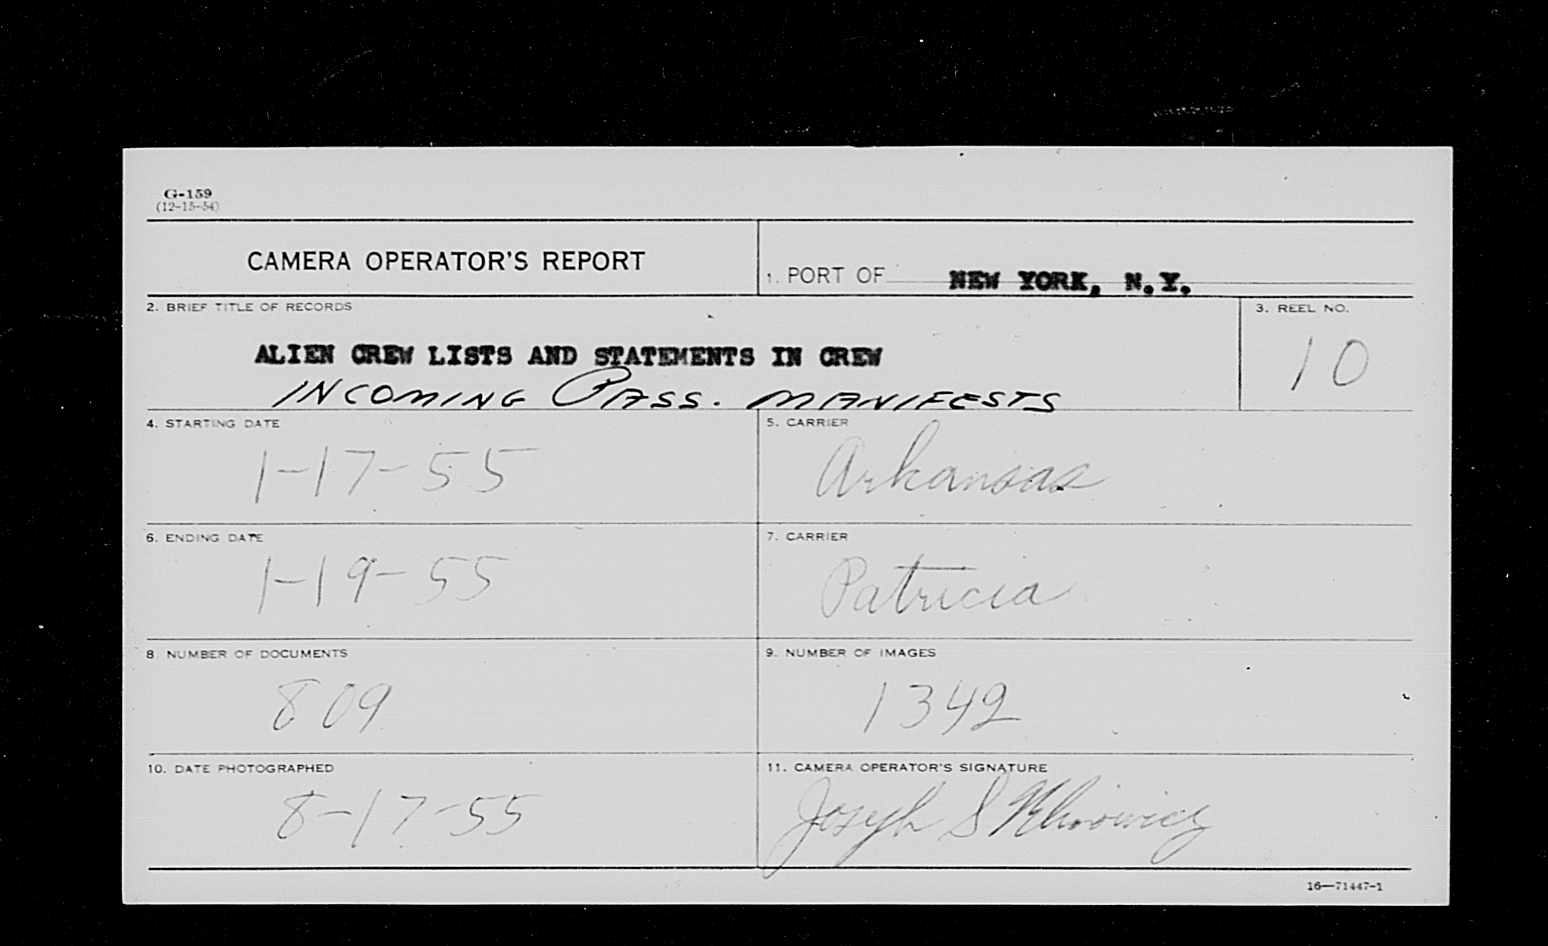 G-159
(12-15-54)
CAMERA OPERATOR'S REPORT
1. PORT OF NEW YORK, N.Y.
2. BRIEF TITLE OF RECORDS
ALIEN CREW LISTS AND STATEMENTS IN CREW
INCOMING PASS. MANIFESTS
3. REEL NO.
10
4. STARTING DATE
1-17-55
5. CARRIER
Arkansas
6. ENDING DATE
1-19-55
7. CARRIER
Patricia
8 NUMBER OF DOCUMENTS
809
9. NUMBER OF IMAGES
1342
10. DATE PHOTOGRAPHED
8-17-55
11. CAMERA OPERATOR'S SIGNATURE
Joseph S
16—71447-1